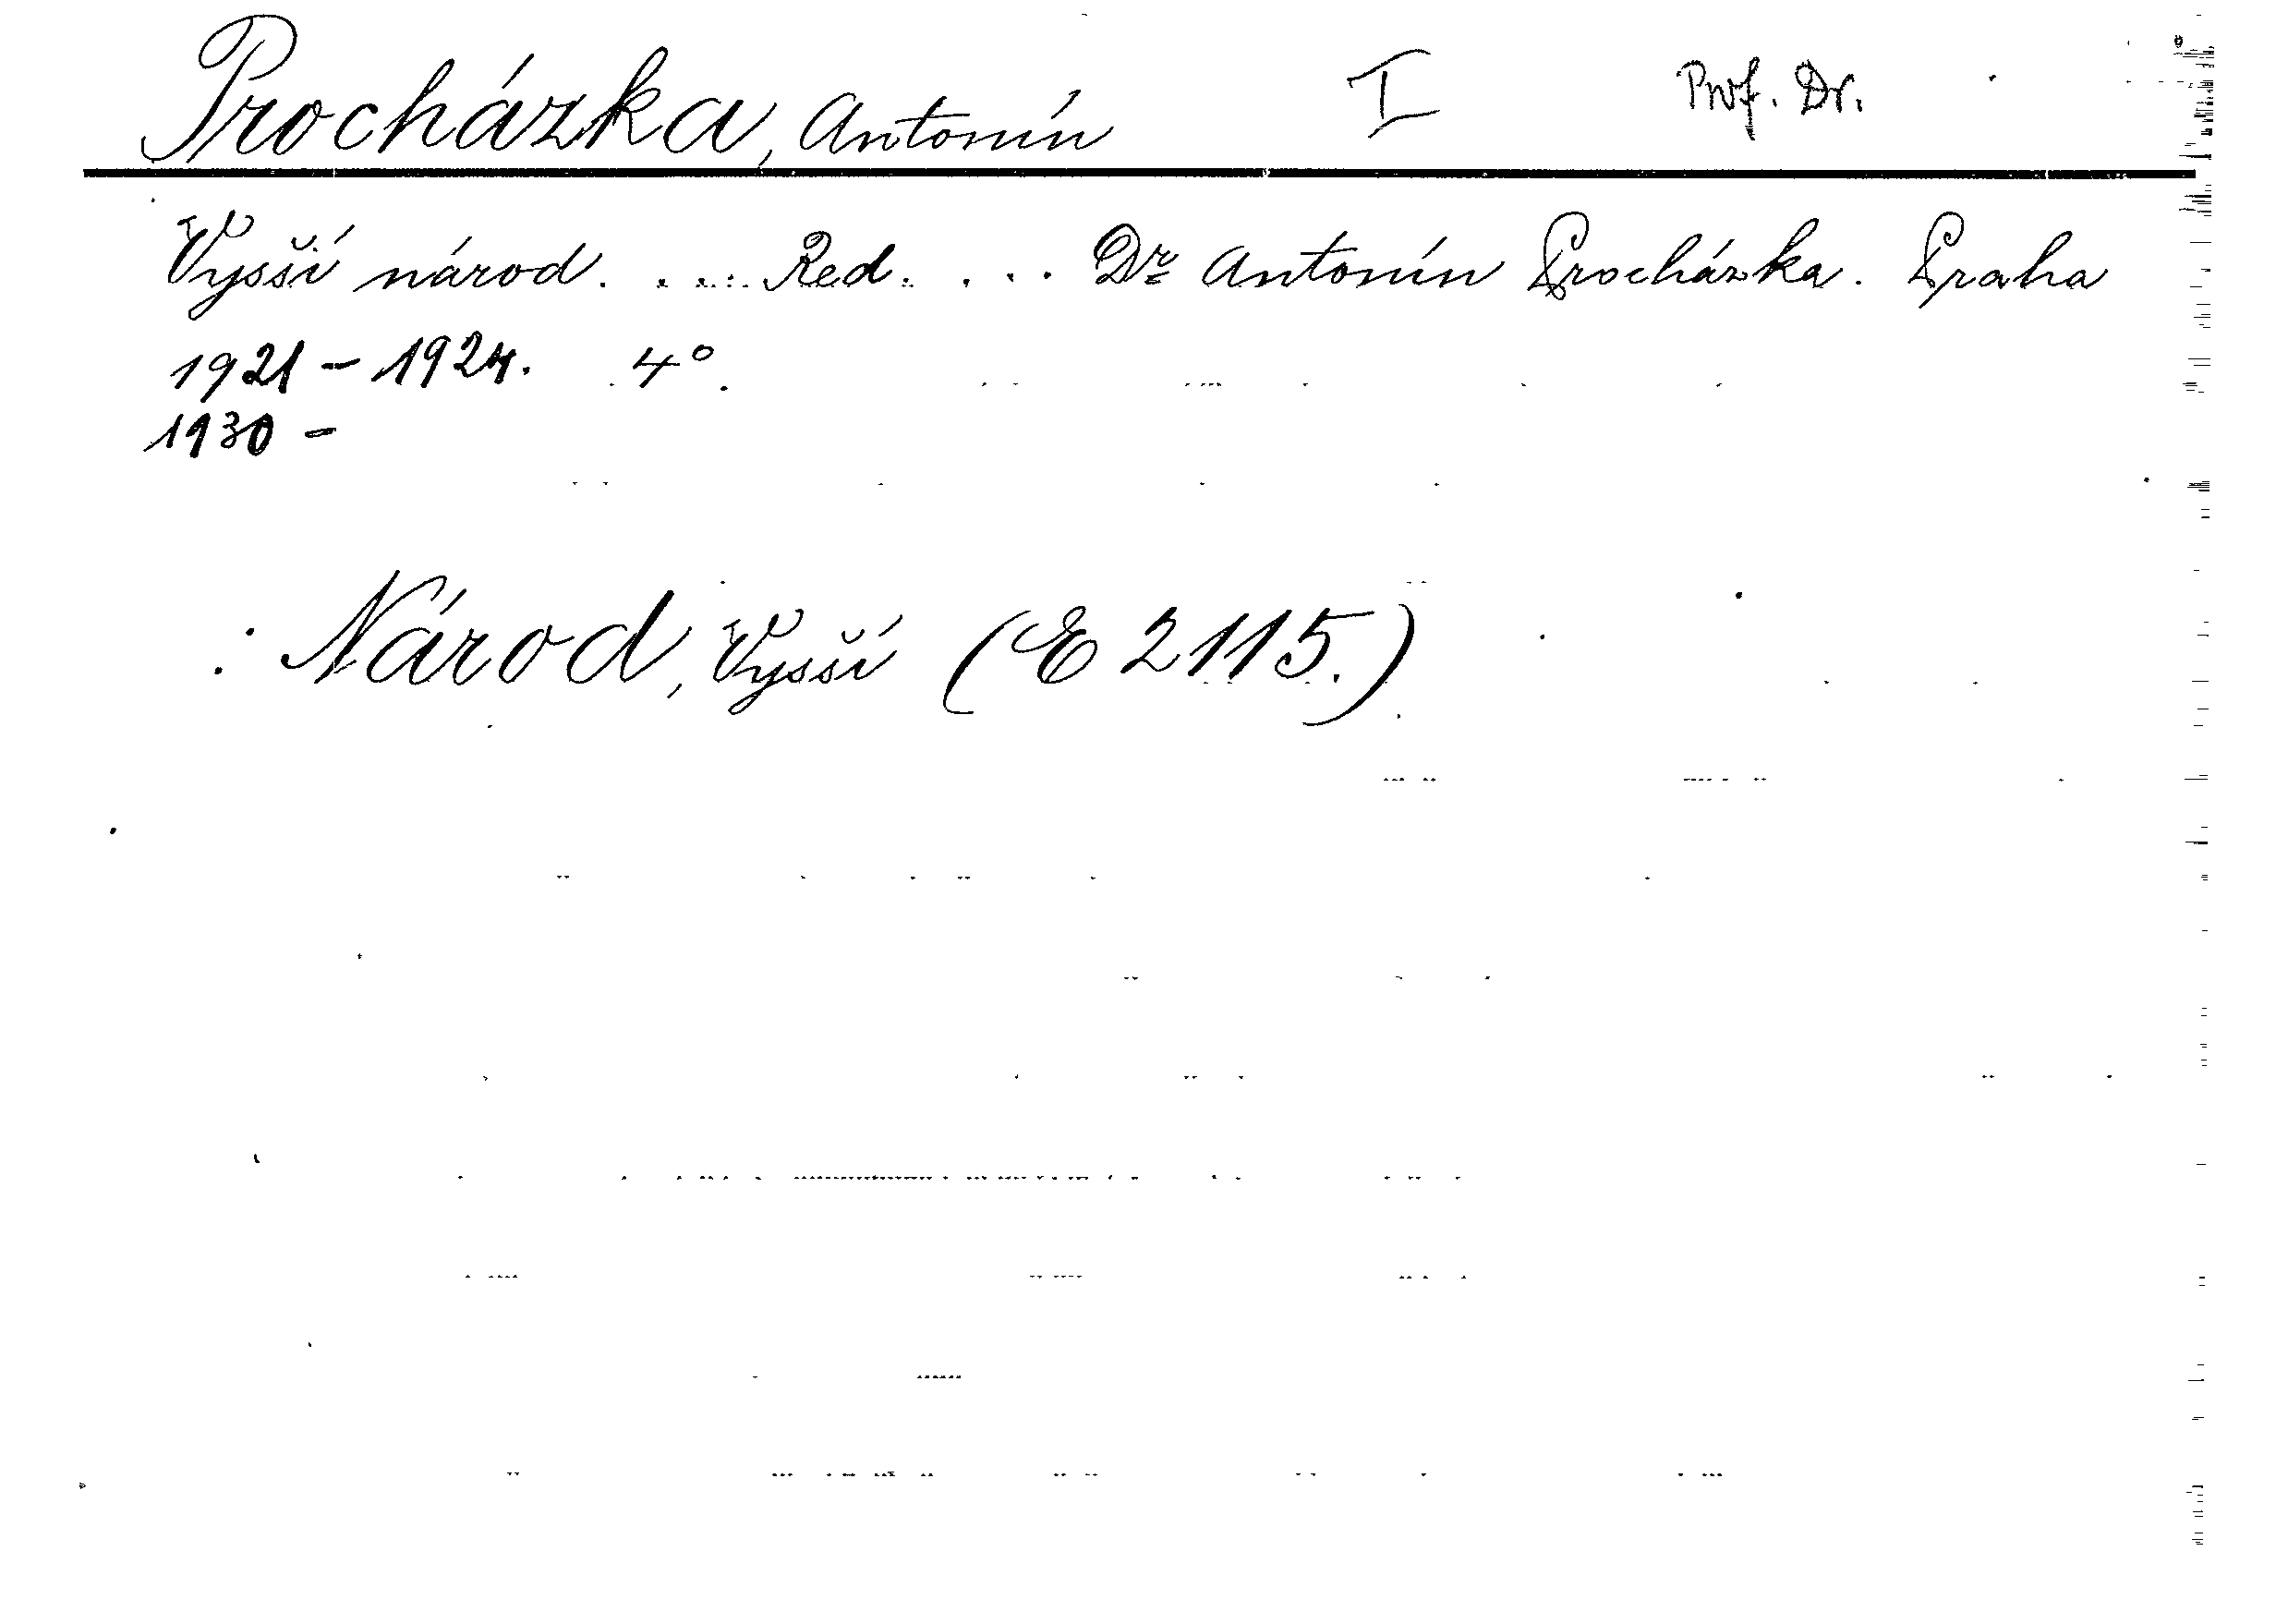 Procházka, Antonín I Prof. Dr.
Vyšší národ. ... Red. ... Dr Antonín Procházka. Praha
1921 - 1924. 4°.
1930 -
: Národ, Vyšší (E 2115.)